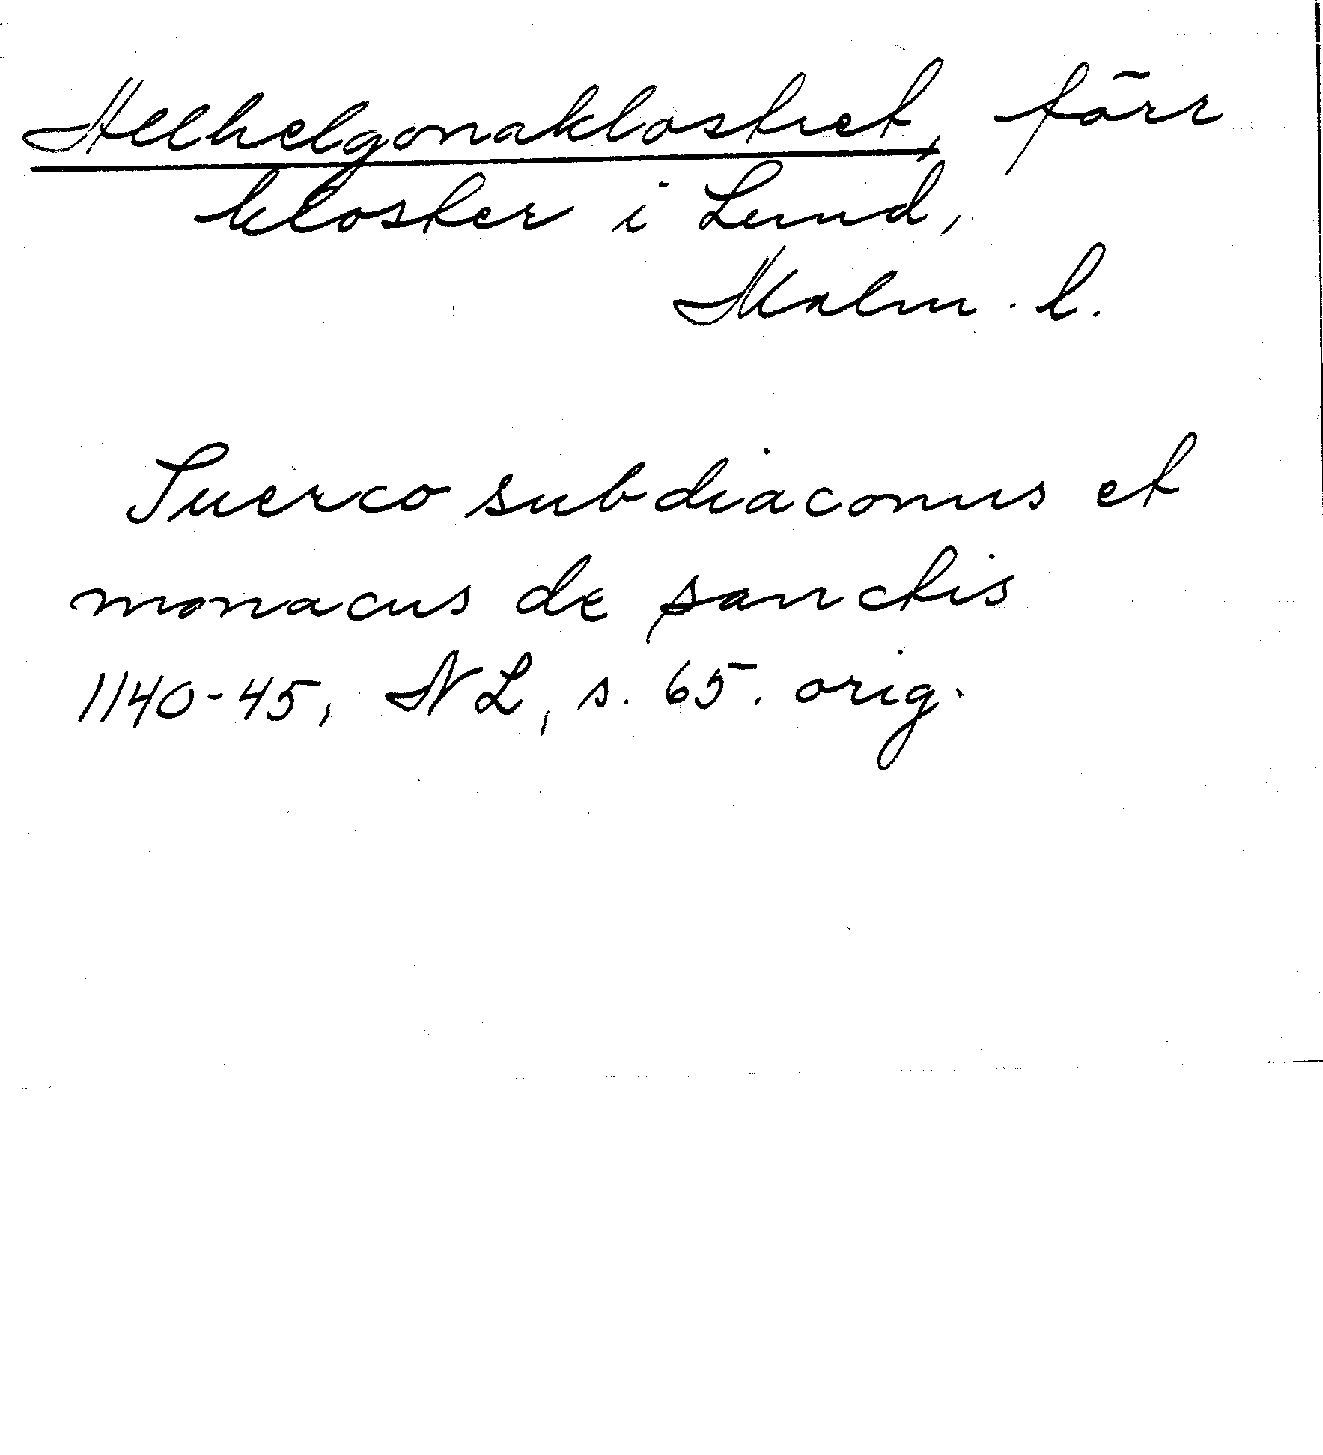 Allhelgonaklostret, förr
kloster i Lund,
Malm. l.
Suerco subdiaconus et
monacus de sanctis
1140-45, NL, s. 65. orig.